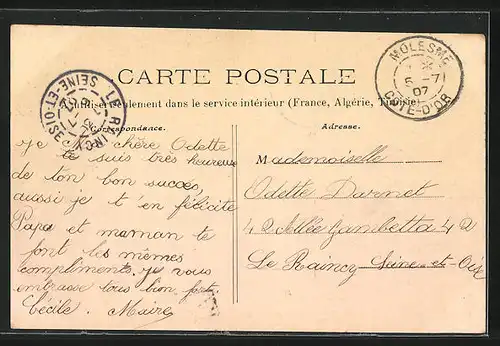 CARTE POSTALE
A utiliser seulement dans le service intérieur (France, Algérie, Tunisie)
Correspondance.
Je chère Odette
te suis très heureuse
de ton bon succès,
aussi je t'en félicite
Papa et maman te
font les mêmes
compliments. je vous
embrasse tous bien fort
Cécile. Maire
Adresse.
Mademoiselle
Odette Darnet
42 Allée Gambetta 42
Le Raincy Seine-et-Oise
MOLESME
6 -7
07
CÔTE-D'OR
LE RAINCY
SEINE-ET-OISE